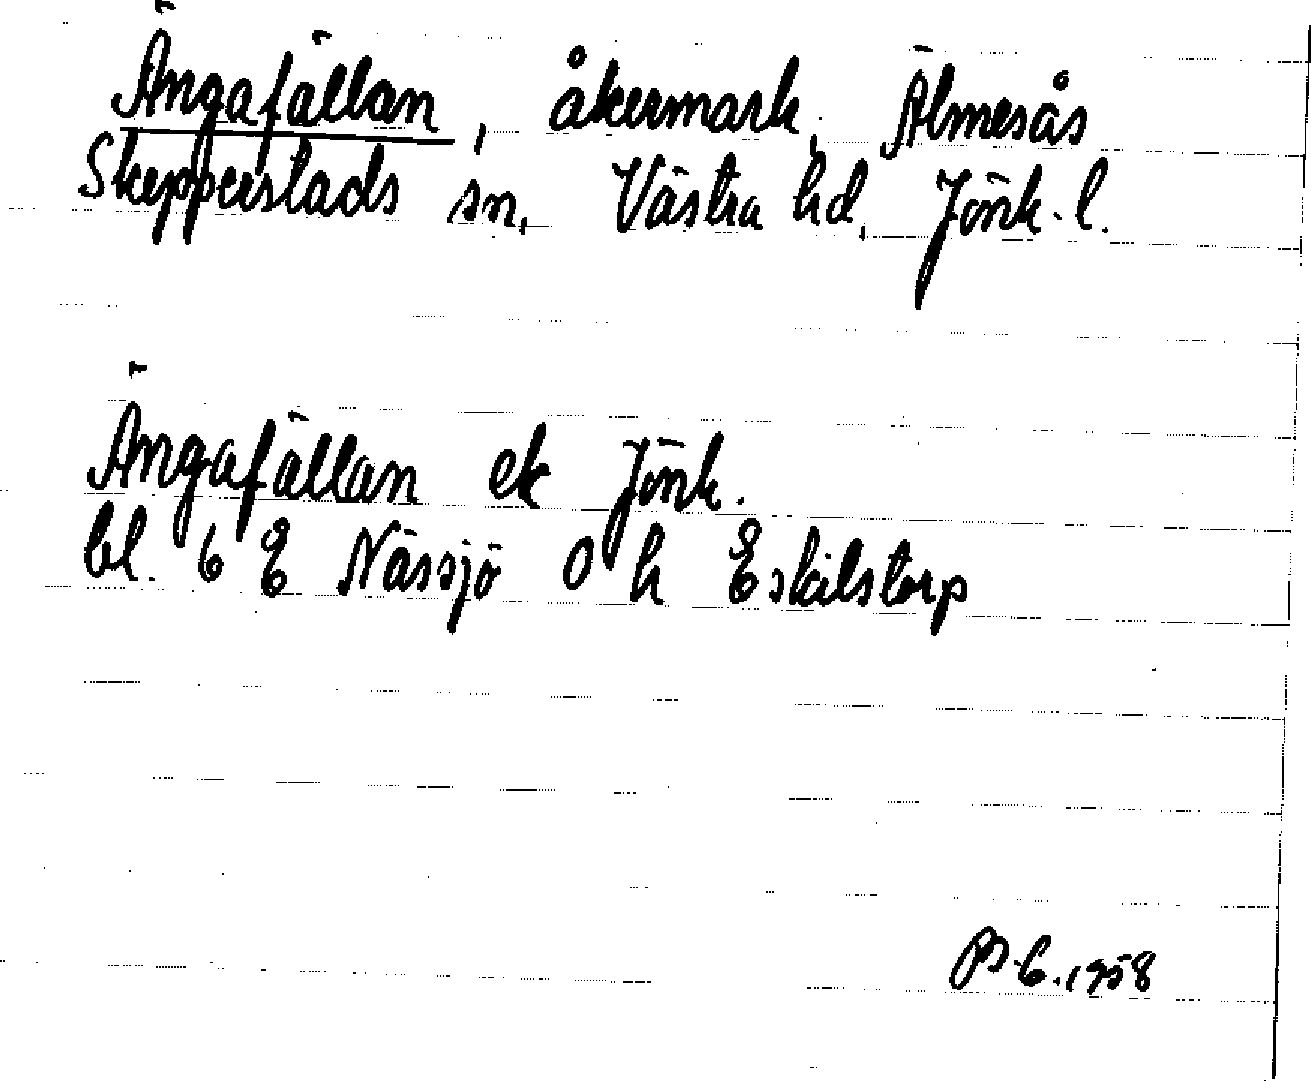 Ängafällan, åkermark, Älmesås
Skepperstads sn, Västra hd, Jönk. l.
Ängafällan ek Jönk.
bl. 6 E Nässjö 0 h Eskilstorp
1958